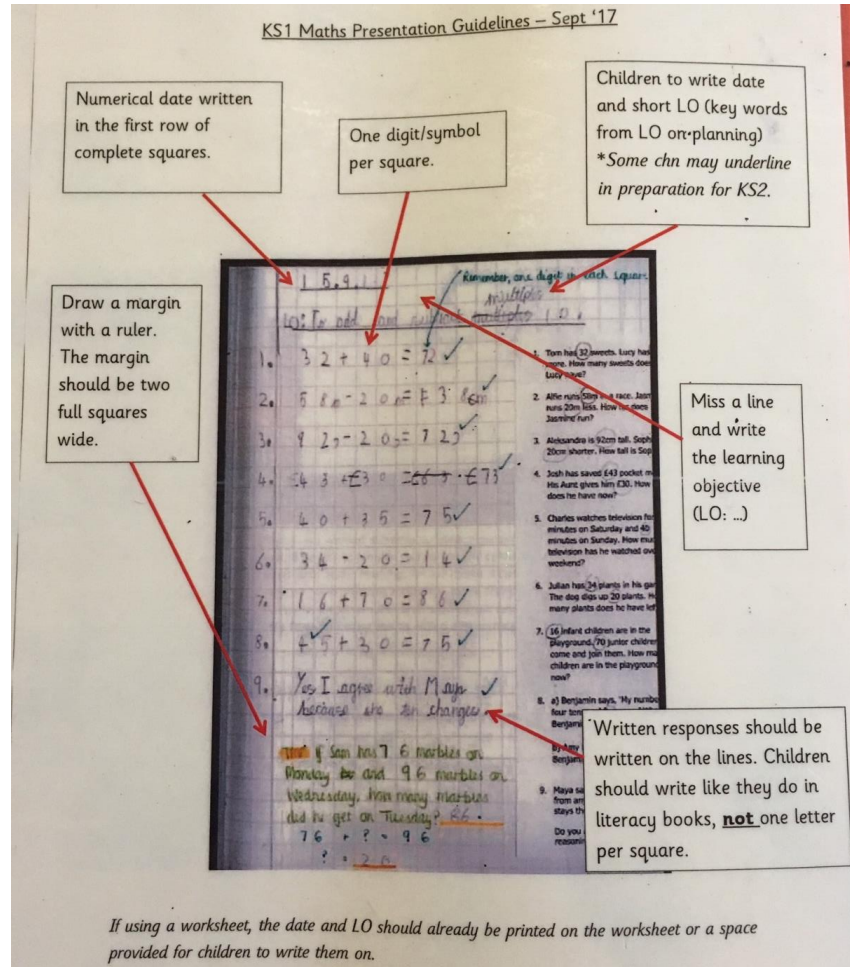 KS1 Maths Presentation Guidelines – Sept '17
Numerical date written
in the first row of
complete squares.
One digit/symbol
per square.
Children to write date
and short LO (key words
from LO on planning)
*Some chn may underline
in preparation for KS2.
Draw a margin
with a ruler.
The margin
should be two
full squares
wide.
Miss a line
and write
the learning
objective
(LO: ...)
Remember, one digit in each square.
multiples
LO: To add and subtract multiples 10.
1. 32 + 40 = 72 ✓
2. 58m - 20m = 38m ✓
3. 92 - 20 = 72 ✓
4. £43 + £30 = £73 ✓
5. 40 + 35 = 75 ✓
6. 34 - 20 = 14 ✓
7. 16 + 70 = 86 ✓
8. 45 + 30 = 75 ✓
9. Yes I agree with Maya ✓
because the ten changes.
If Sam has 76 marbles on
Monday and 96 marbles on
Wednesday, how many marbles
did he get on Tuesday? 86.
76 + ? = 96
? = 20
1. Tom has 32 sweets. Lucy has
more. How many sweets does
Lucy have?
2. Alfie runs 58m in a race.
runs 20m less. How far does
Jasmine run?
3. Aleksandra is 92cm tall.
20cm shorter. How tall is
4. Josh has saved £43 pocket
His Aunt gives him £30. How
does he have now?
5. Charles watches television for
minutes on Saturday and 40
minutes on Sunday. How
television has he watched
weekend?
6. Julian has 34 plants in his
The dog digs up 20 plants.
many plants does he have
7. 16 infant children are in the
playground. 70 junior children
come and join them. How
children are in the playground
now?
8. a) Benjamin says, 'My
four
9. Maya
from
stays
Do you
Written responses should be
written on the lines. Children
should write like they do in
literacy books, not one letter
per square.
If using a worksheet, the date and LO should already be printed on the worksheet or a space
provided for children to write them on.